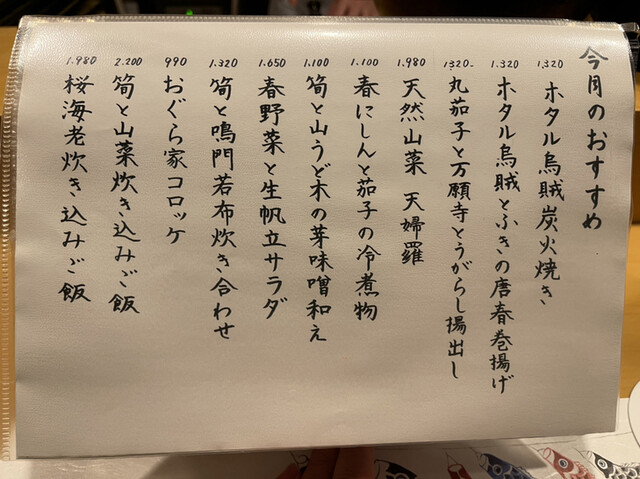 今月のおすすめ
1,320 ホタル烏賊炭火焼き
1.320 ホタル烏賊とふきの唐春巻揚げ
1320- 丸茄子と万願寺とうがらし揚出し
1.980 天然山菜 天婦羅
1.100 春にしんと茄子の冷煮物
1.100 筍と山うど木の芽味噌和え
1.650 春野菜と生帆立サラダ
1.320 筍と鳴門若布炊き合わせ
990 おぐら家コロッケ
2.200 筍と山菜炊き込みご飯
1.980 桜海老炊き込みご飯